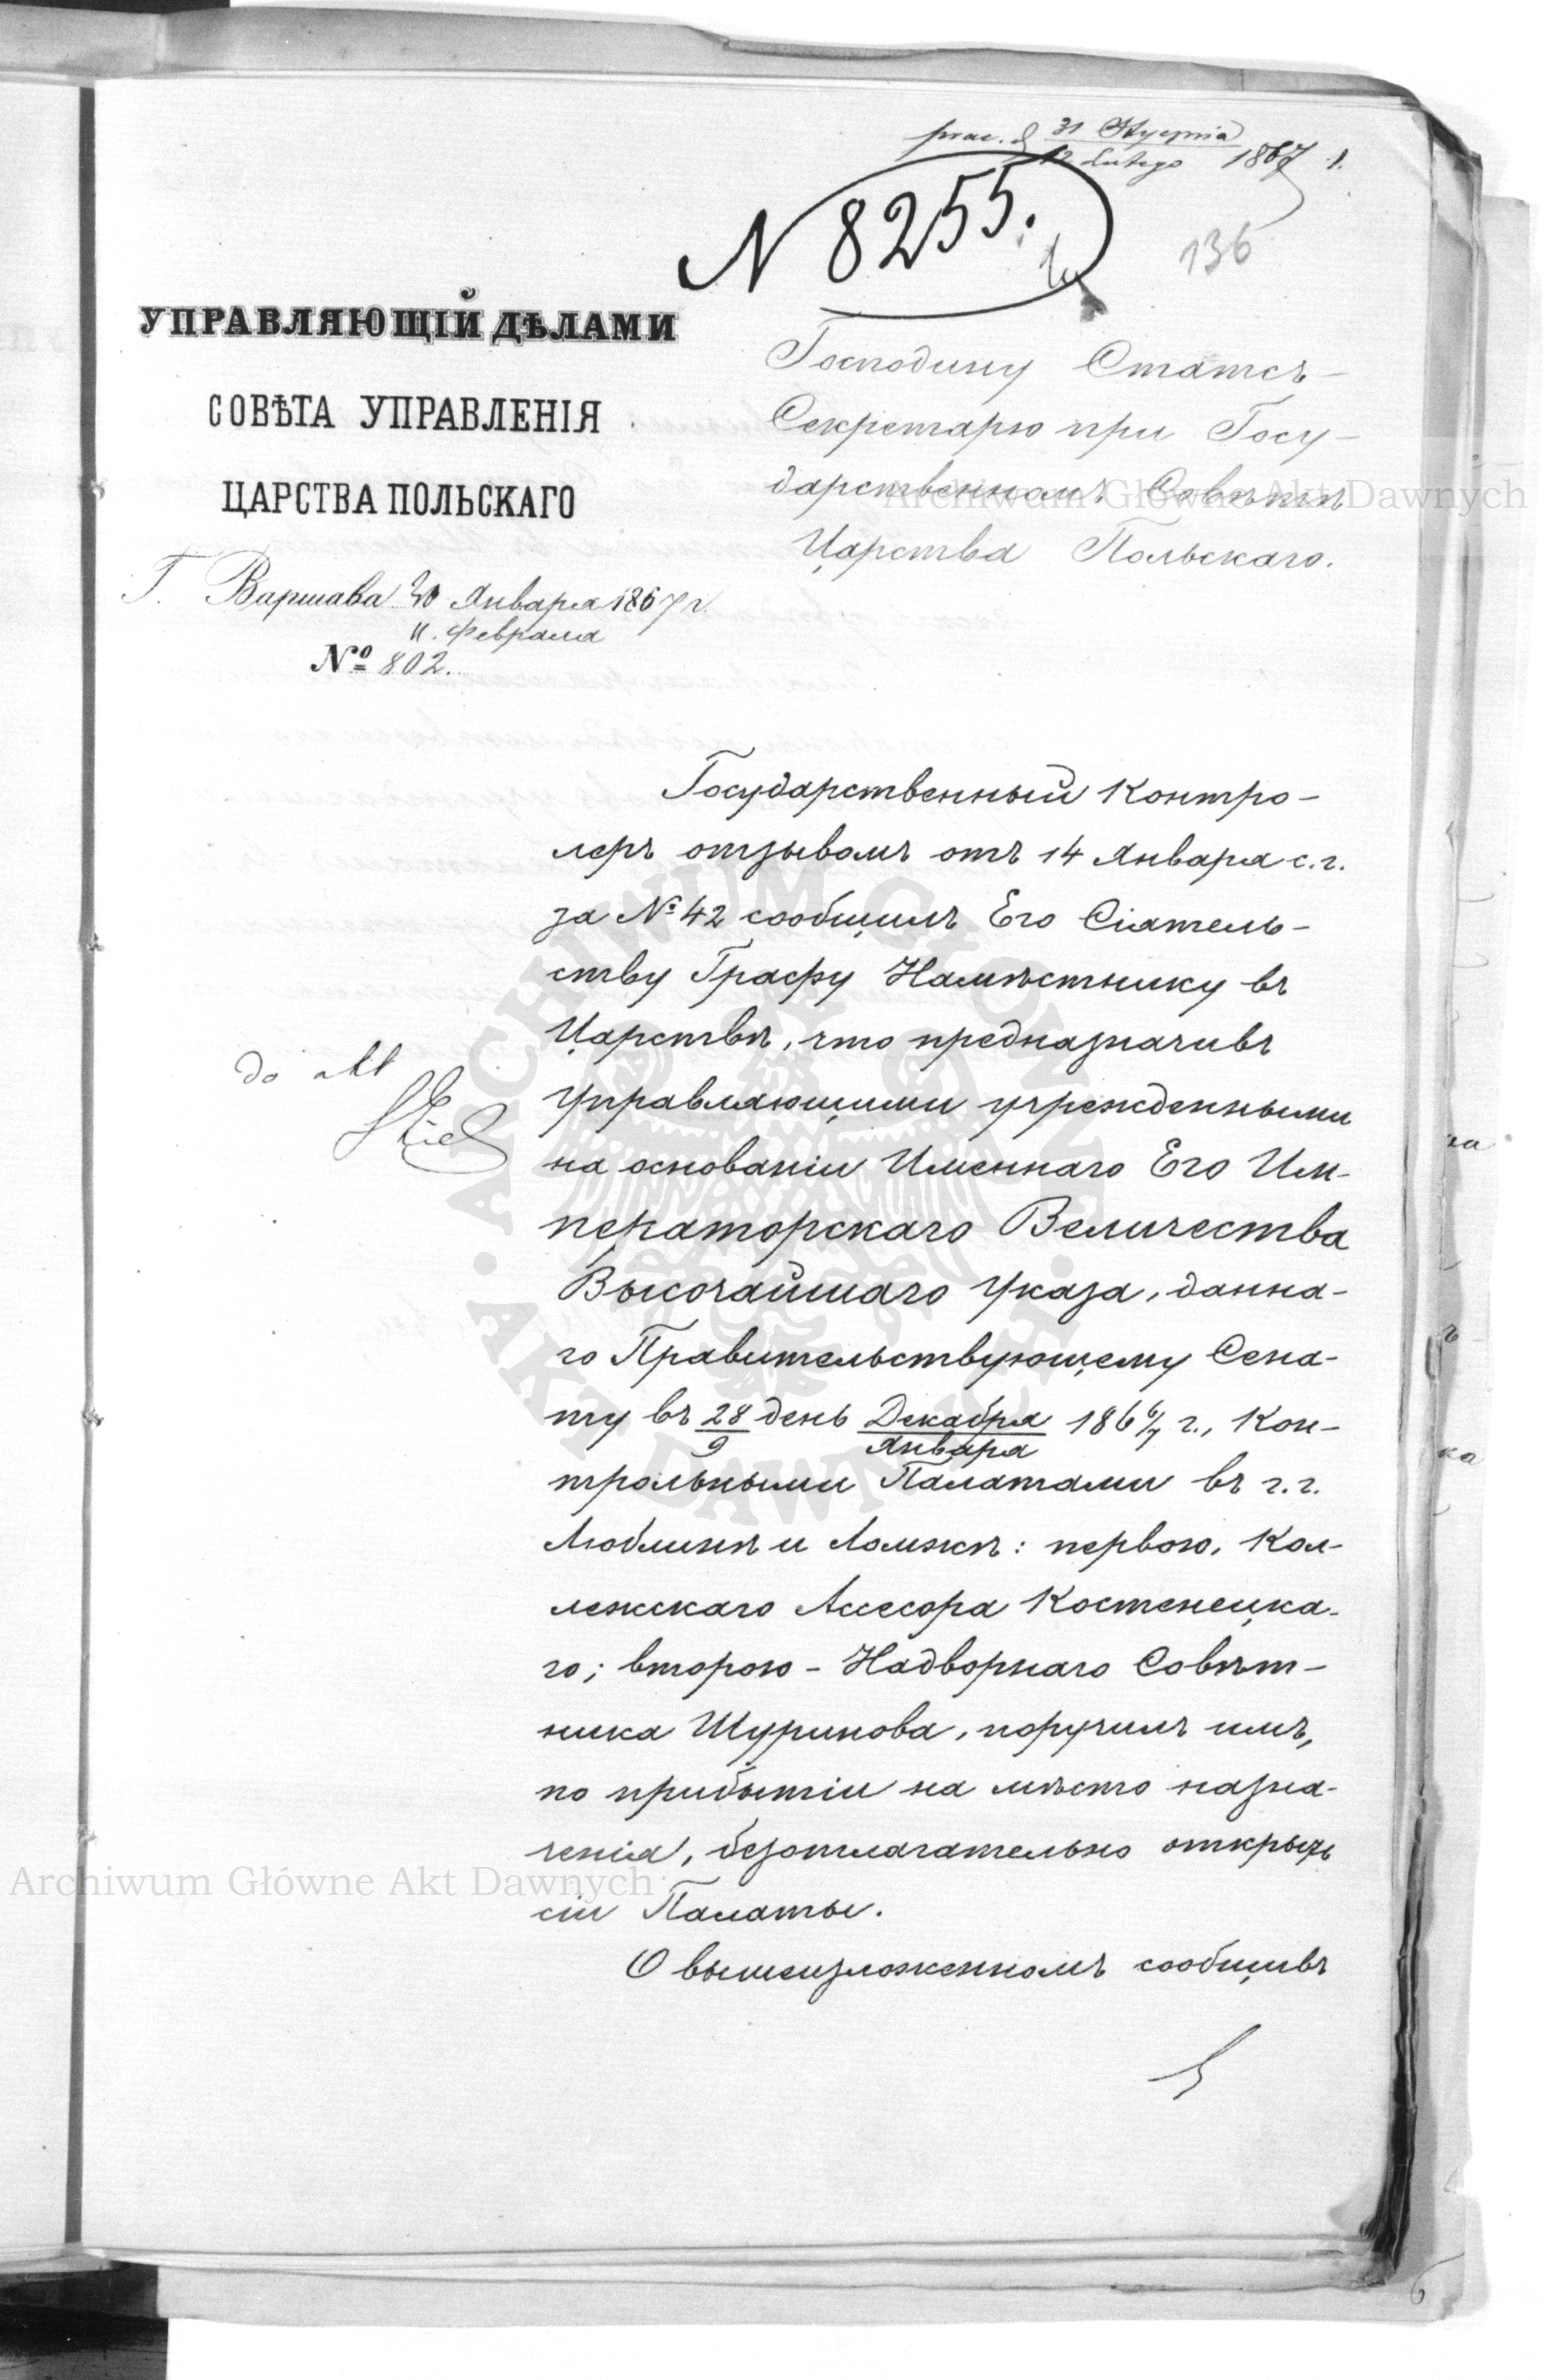 prac. d 31 Stycznia
12 Lutego 1867 r.
N 8255.
136
УПРАВЛЯЮЩІЙ ДѢЛАМИ
СОВѢТА УПРАВЛЕНІЯ
ЦАРСТВА ПОЛЬСКАГО
Г. Варшава 30 Января 1867 г.
11. Февраля
№ 802.
Господину Статсъ-
Секретарю при Госу-
дарственномъ Совѣтѣ
Царства Польскаго.
Государственный Контро-
леръ отзывомъ отъ 14 Января с.г.
за № 42 сообщилъ Его Сіятель-
ству Графу Намѣстнику въ
Царствѣ, что предназначивъ
Управляющими учрежденными
на основаніи Именнаго Его Им-
ператорскаго Величества
Высочайшаго Указа, данна-
го Правительствующему Сена-
ту въ 28/9 день Декабря/Января 1866/7 г., Кон-
трольными Палатами въ г.г.
Люблинѣ и Ломжѣ: первою, Кол-
лежскаго Асесора Костенецка-
го; второю - Надворнаго Совѣт-
ника Шуринова, поручилъ имъ,
по прибытіи на мѣсто назна-
ченія, безотлагательно открыть
сіи Палаты.
О вышеизложенномъ сообщивъ
do akt
Archiwum Główne Akt Dawnych
Archiwum Główne Akt Dawnych
ARCHIWUM GŁÓWNE AKT DAWNYCH